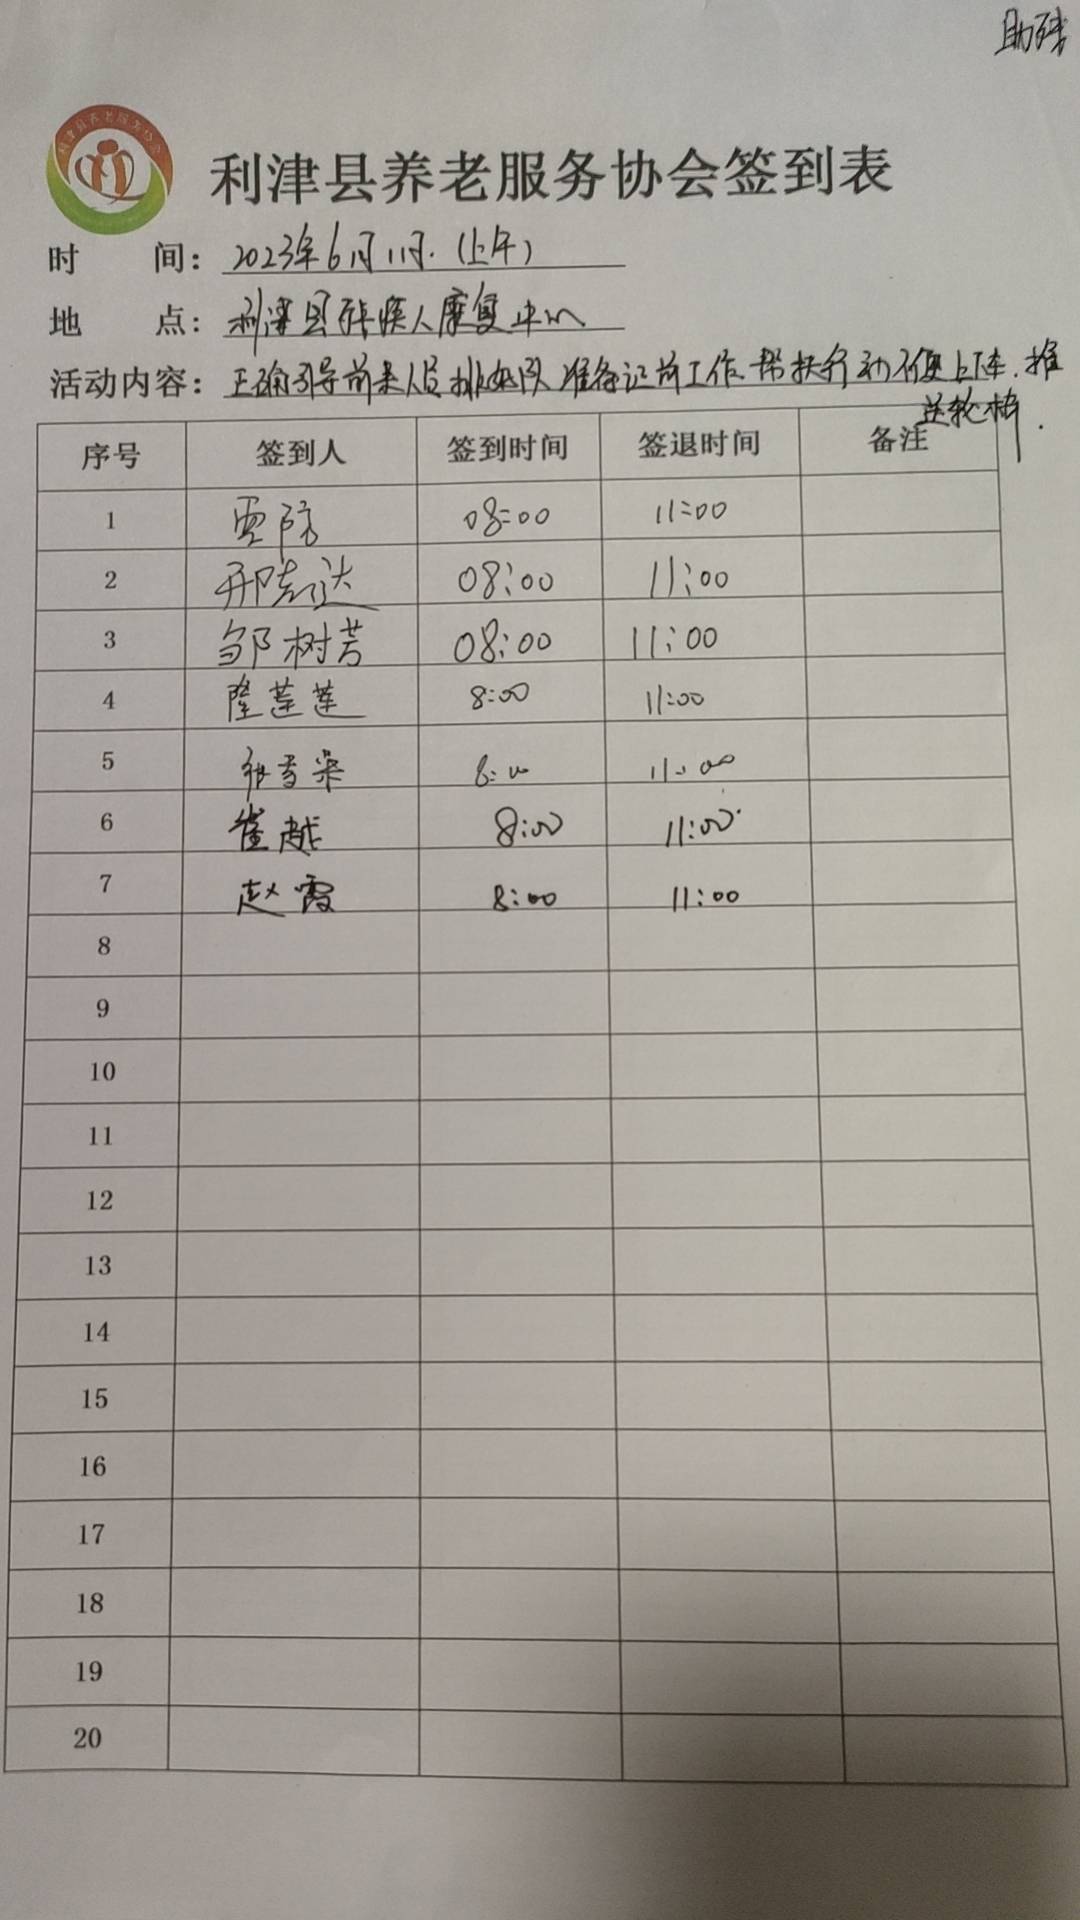 助残
利津县养老服务协会
利津县养老服务协会签到表
时 间: 2023年6月11日.(上午)
地 点: 利津县残疾人康复中心
活动内容: 正确引导前来人员排好队 准备证前工作、帮扶行动不便上下车.推
送轮椅.
序号 签到人 签到时间 签退时间 备注
1 贾防 08:00 11:00
2 08:00 11:00
3 邹树芳 08:00 11:00
4 隆莲莲 8:00 11:00
5 8:00 11:00
6 崔越 8:00 11:00
7 赵霞 8:00 11:00
8
9
10
11
12
13
14
15
16
17
18
19
20